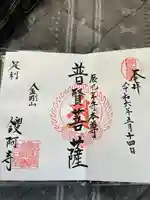 奉拝
令和六年五月十四日
辰巳年守本尊
普賢菩薩
足利
金剛山
鑁阿寺